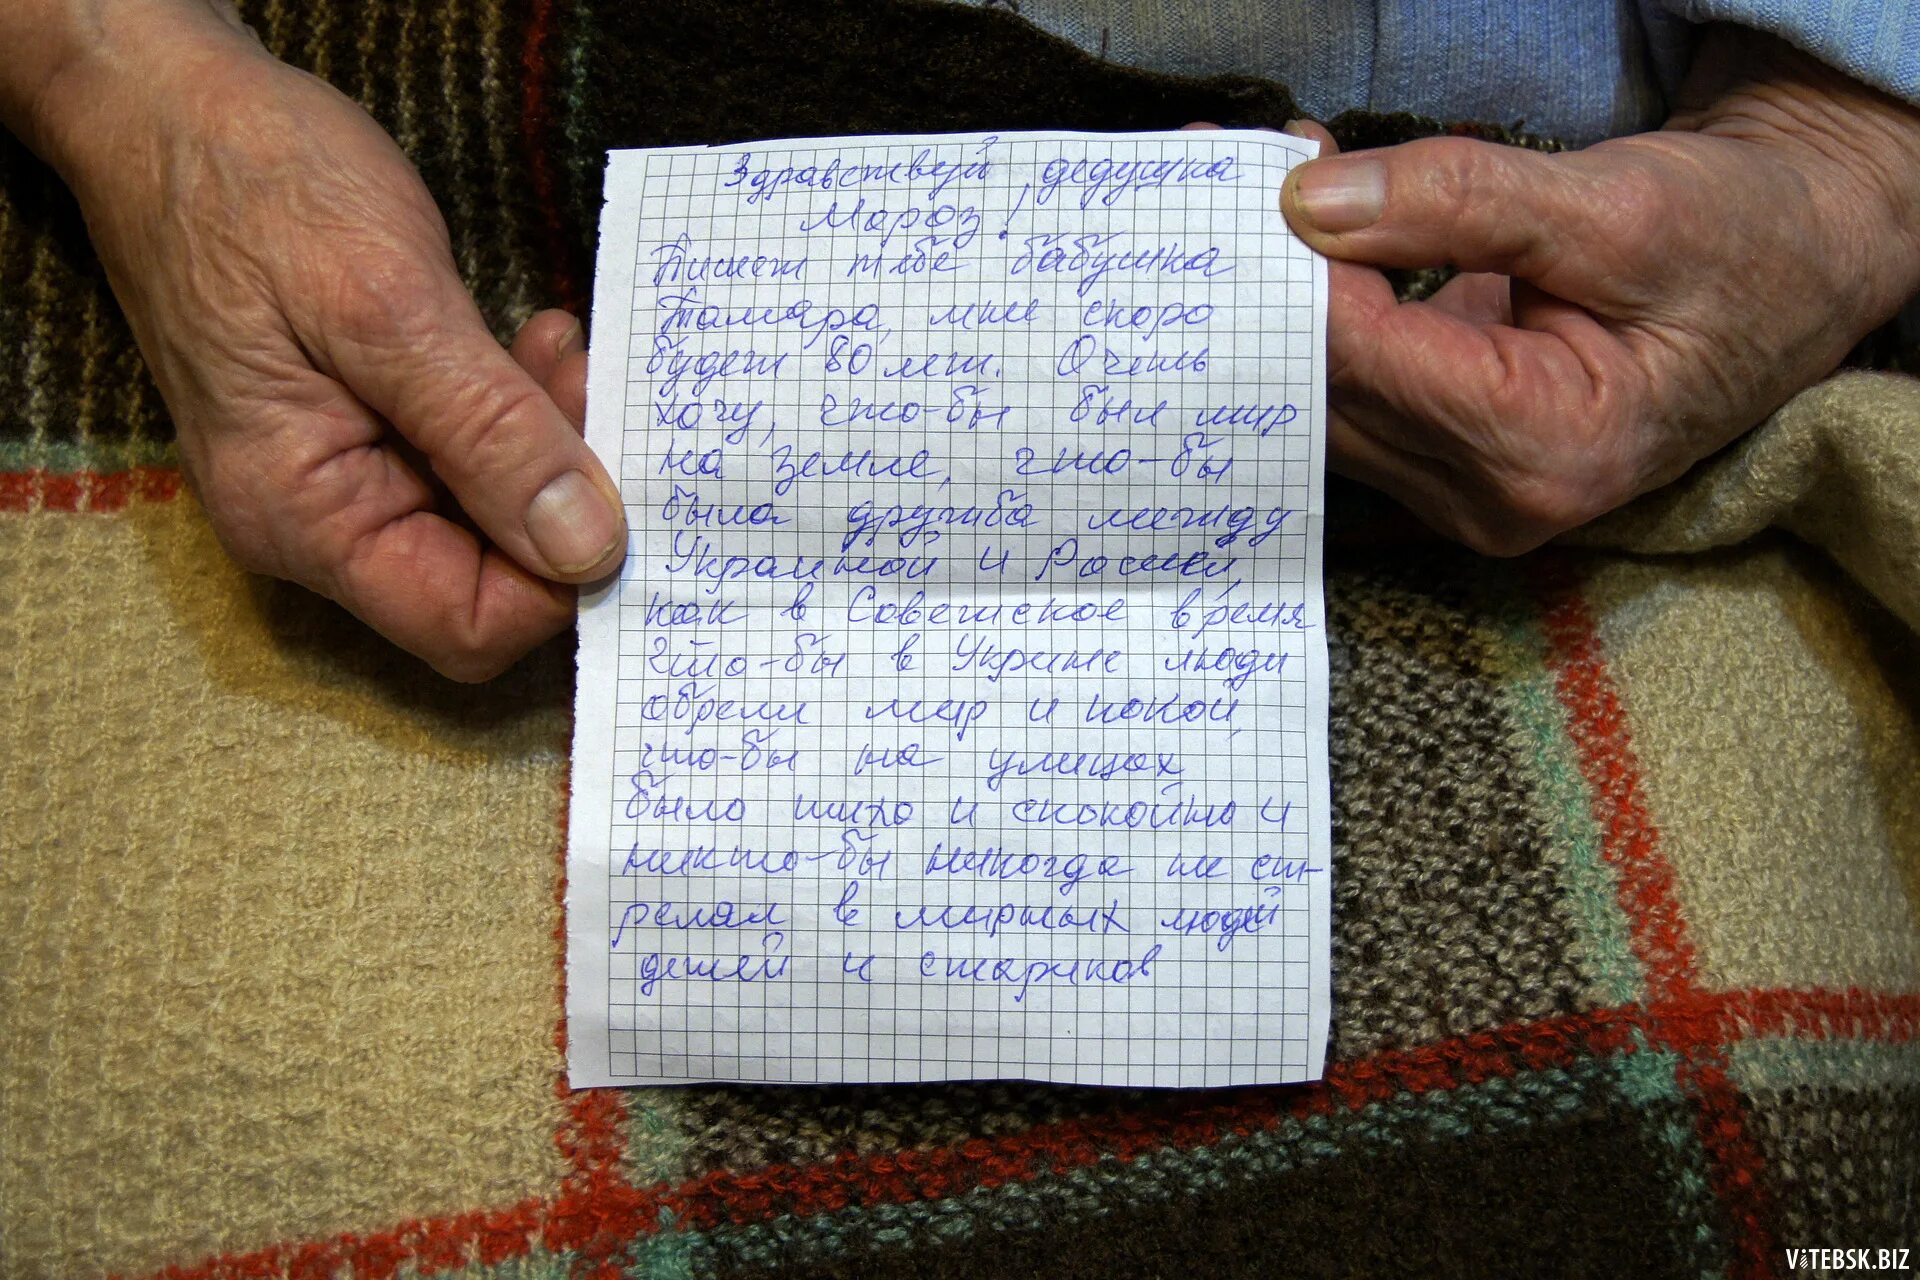 Здравствуй, дедушка
Мороз!
Пишет тебе бабушка
Тамара, мне скоро
будет 80 лет. Очень
хочу, что-бы был мир
на земле, что-бы
была дружба между
Украиной и Россией,
как в Советское время
что-бы в Укрине люди
обрели мир и покой,
что-бы на улицах
было тихо и спокойно и
никто-бы никогда не ст-
релял в мирных людей
детей и стариков
ViTEBSK.BIZ